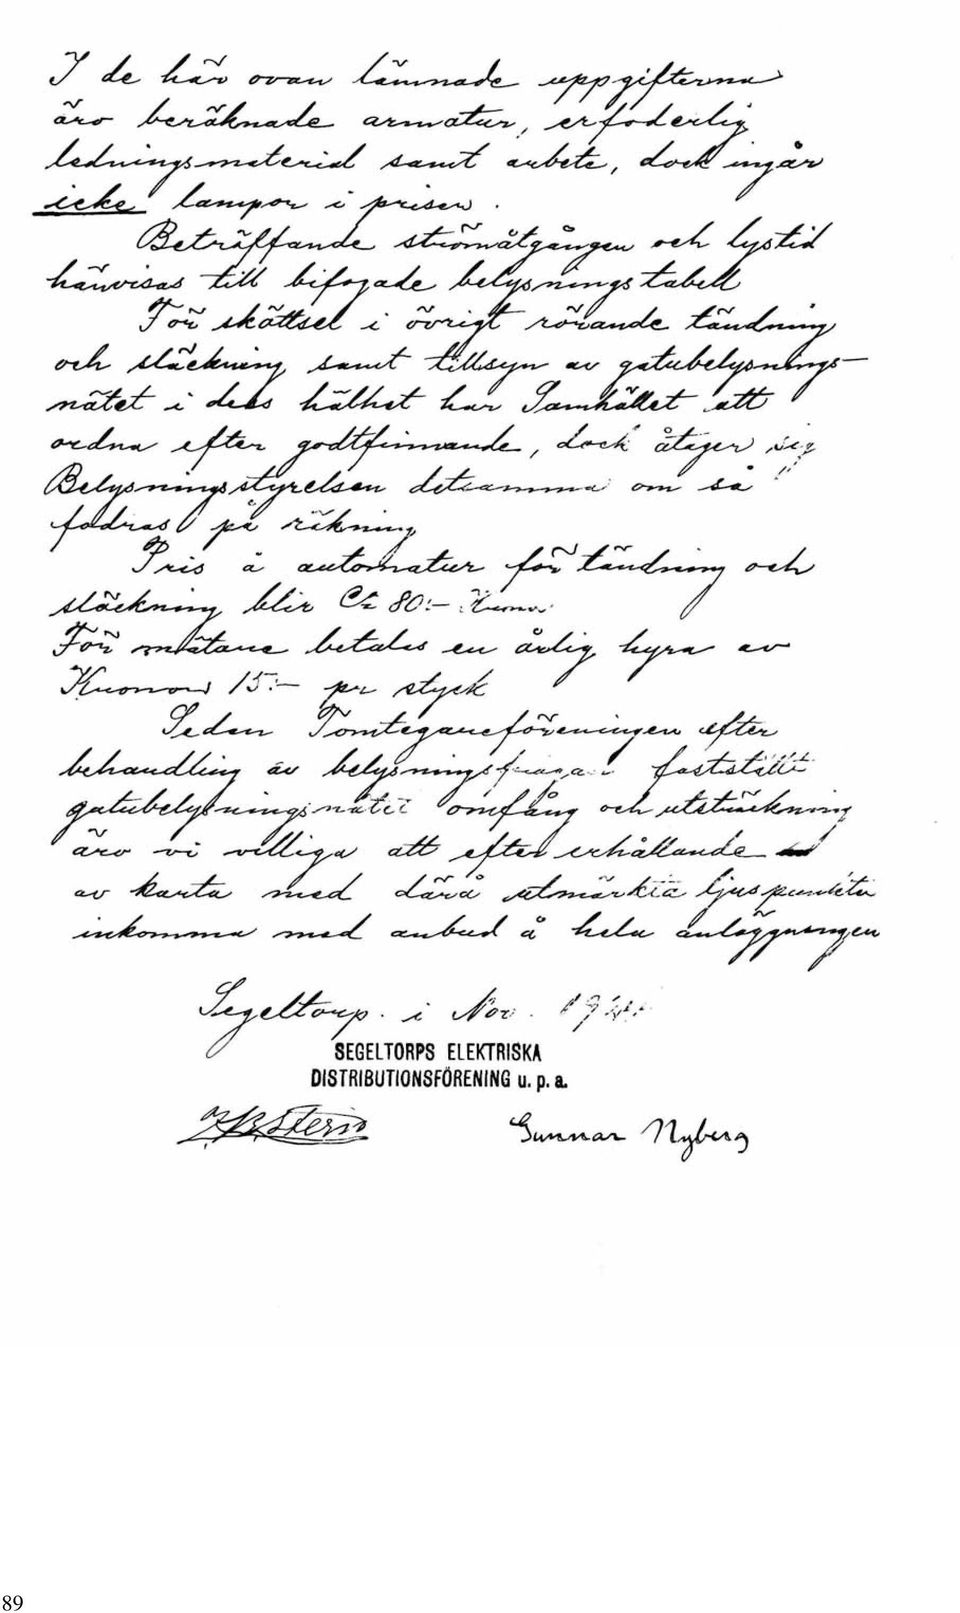 I de här ovan lämnade uppgifterna
äro beräknade armatur, erfoderlig
ledningsmaterial samt arbete, dock ingår
icke lampor i prisen.
Beträffande strömåtgången och lystid
hänvisas till bifogade belysningstabell
För sköttsel i övrigt rörande tändning
och släckning samt tillsyn av gatubelysnings-
nätet i dess hälhet har Samhället att
ordna efter godtfinnande, dock åtager sig
Belysningsstyrelsen detsamma om så
fodras på räkning
Pris å automatur för tändning och
släckning blir Ca 80:- Kronor
För mätare betalas en årlig hyra av
Kronor 15:- pr styck
Sedan Tomtegareföreningen efter
behandling av belysningsfrågan fastställt
gatubelysningsnätet omfång och utsträckning
äro vi villiga att efter erhållande
av karta med därå utmärkta ljuspunkter
inkomma med anbud å hela anläggningen
Segeltorp. i Nov.
SEGELTORPS ELEKTRISKA
DISTRIBUTIONSFÖRENING u. p. a.
Gunnar Nyberg
89